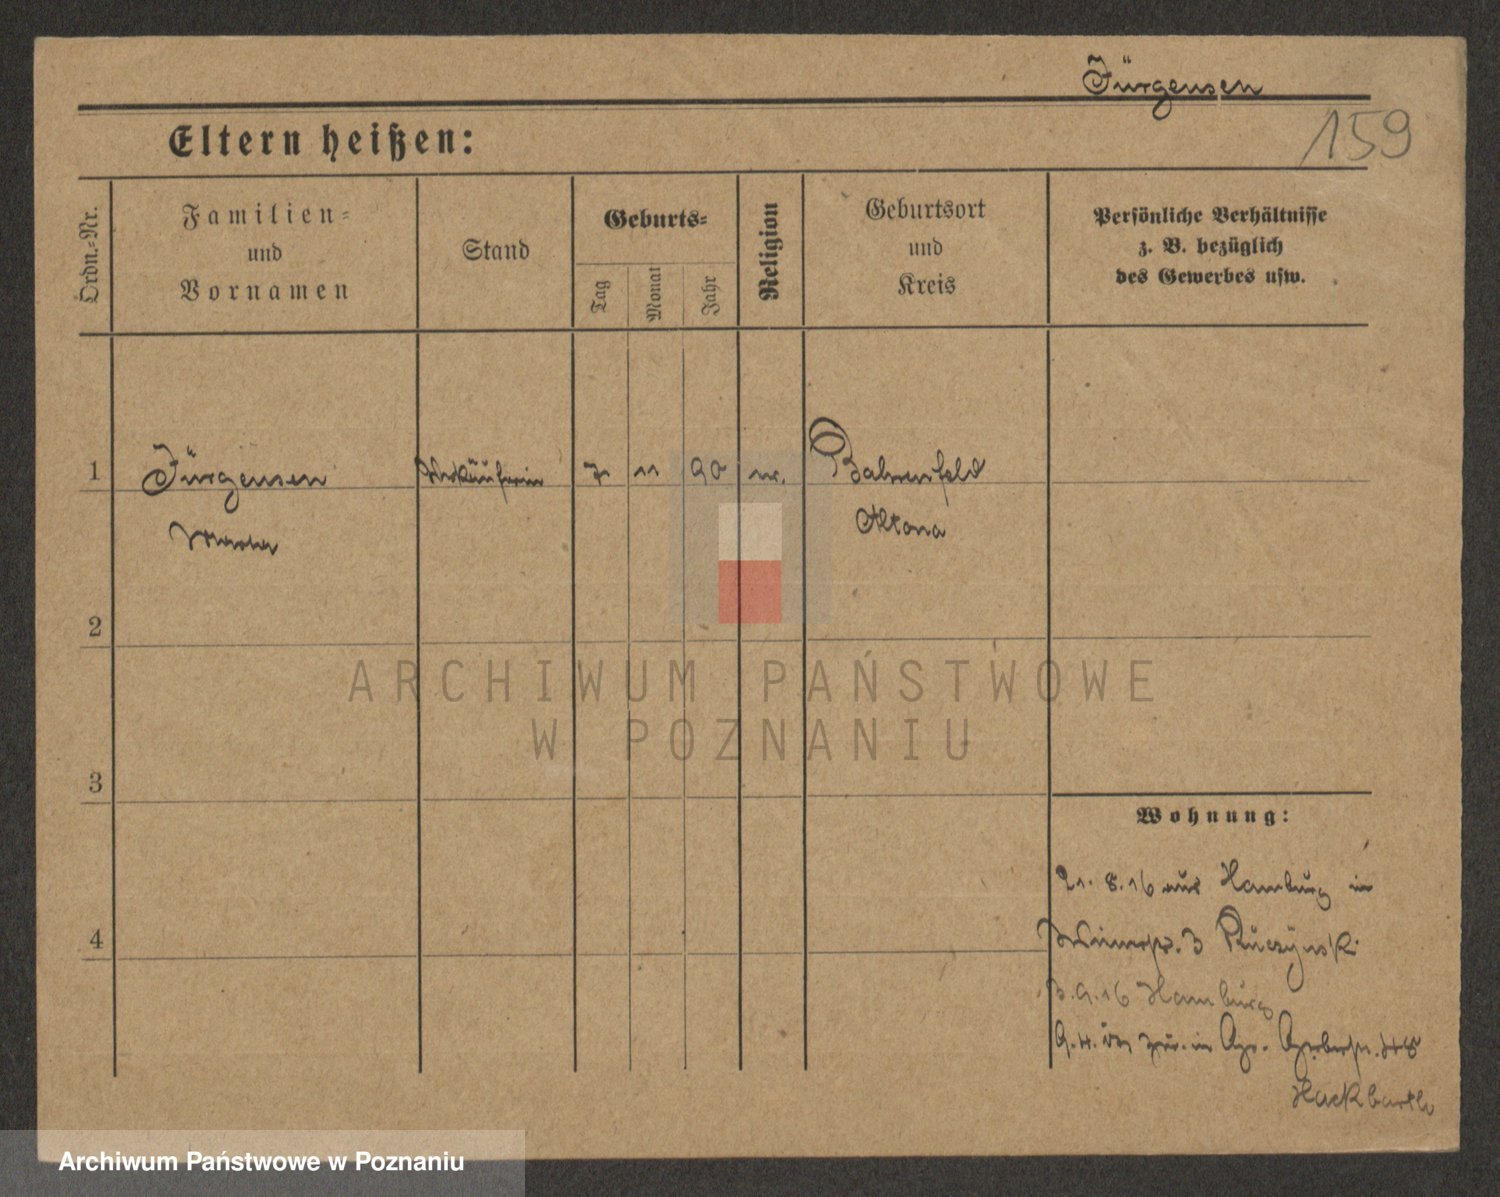 Jürgensen
159
Eltern heißen:
Ordn.-Nr.
Familien-
und
Vornamen
Stand
Geburts-
Tag
Monat
Jahr
Religion
Geburtsort
und
Kreis
Persönliche Verhältnisse
z. B. bezüglich
des Gewerbes usw.
1
Jürgensen
Verkäuferin
7
11
90
Bahrenfeld
Altona
2
ARCHIWUM PAŃSTWOWE
W POZNANIU
3
Wohnung:
21.8.16 aus Hamburg in
3
4
9.16 Hamburg
in
Hackbarth
Archiwum Państwowe w Poznaniu